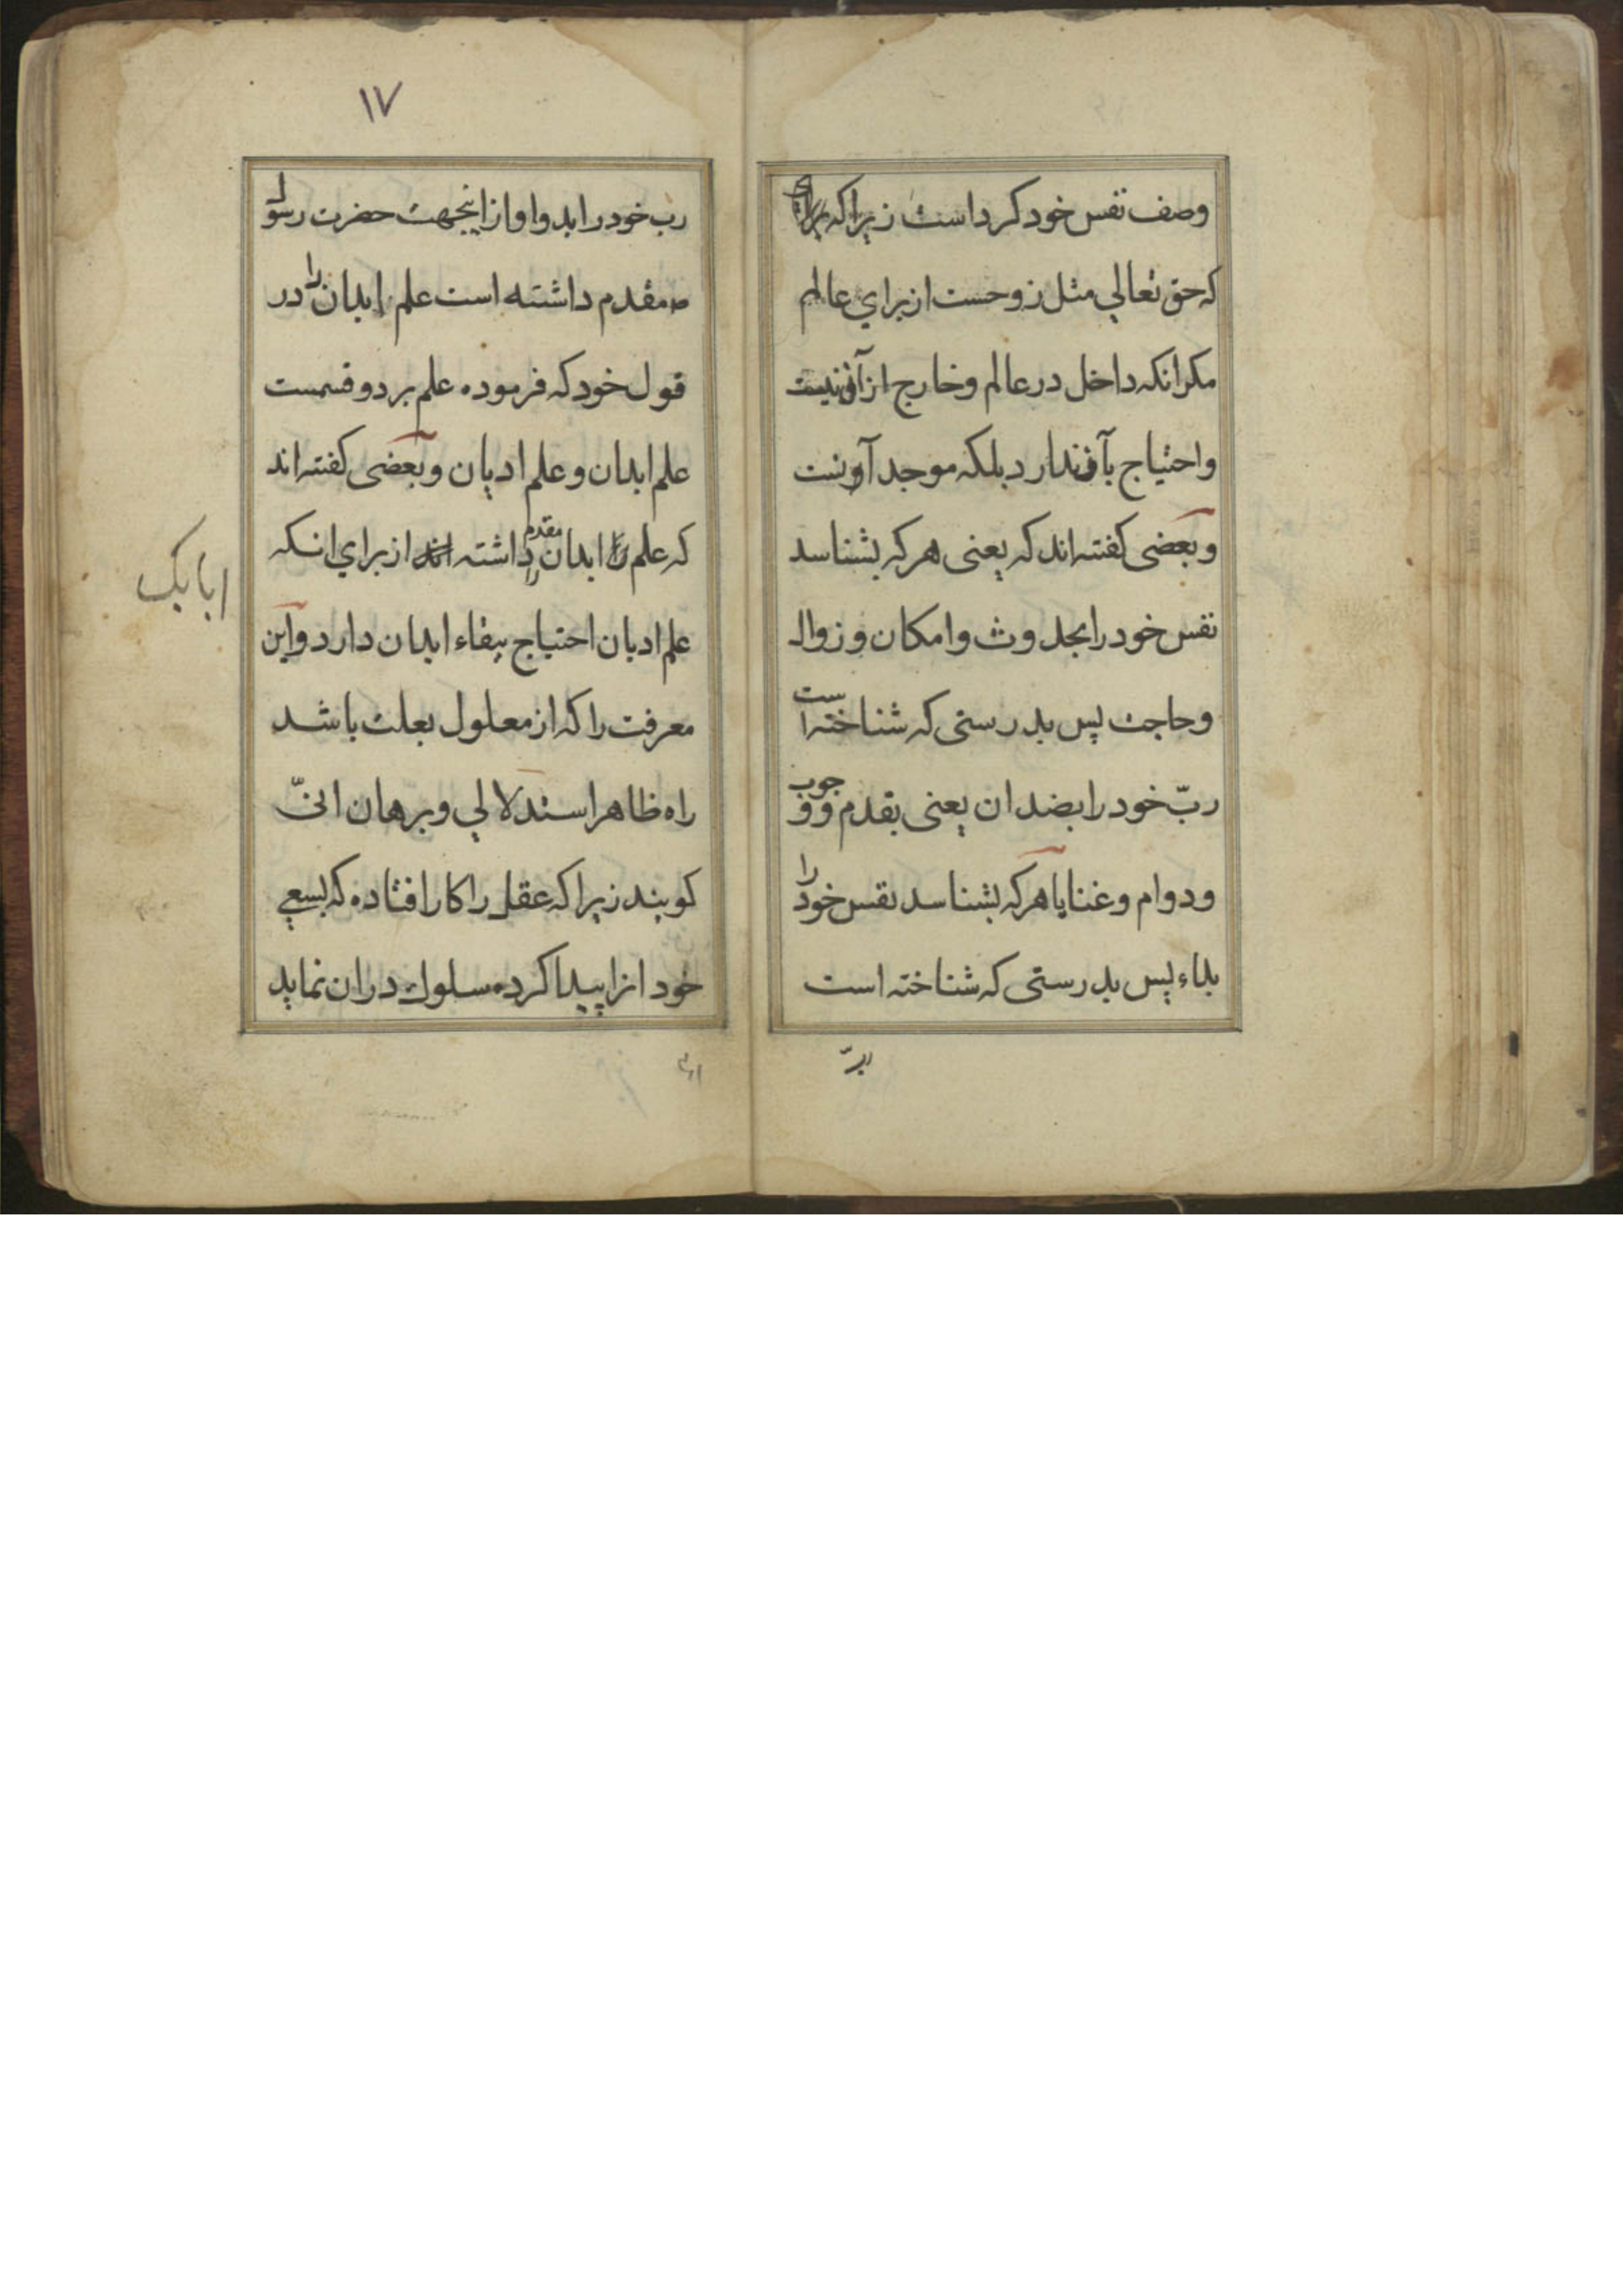 وصف نفس خود کرد است زیرا که
که حق تعالي مثل روحست از براي عالم
مکر انکه داخل در عالم و خارج از آن نیست
و احتیاج بآن ندارد بلکه موجد آونست
و بعضی کفته اند که یعنی هر که بشناسد
نفس خود را بحدوث و امکان و زوال
و حاجت پس بدرستی که شناخته است
ربّ خود را بضد ان یعنی بقدم و وجوب
و دوام و غنا یا هر که بشناسد نفس خود را
بداء پس بدرستی که شناخته است
ربّ
۱۷
رب خود را بدوا و از اینجهت حضرت رسول
ص مقدم داشته است علم ابدان را در
قول خود که فرموده علم بر دو قسمست
علم ابدان و علم ادیان و بعضی کفته اند
که علم ابدان را مقدم داشته از براي انکه
علم ادیان احتیاج ببقاء ابدان دارد و این
معرفت را که از معلول بعلت باشد
راه ظاهر استدلالي و برهان انیّ
کویند زیرا که عقل را کار افتاده که بسعي
خود انرا پیدا کرده سلوک در ان نماید